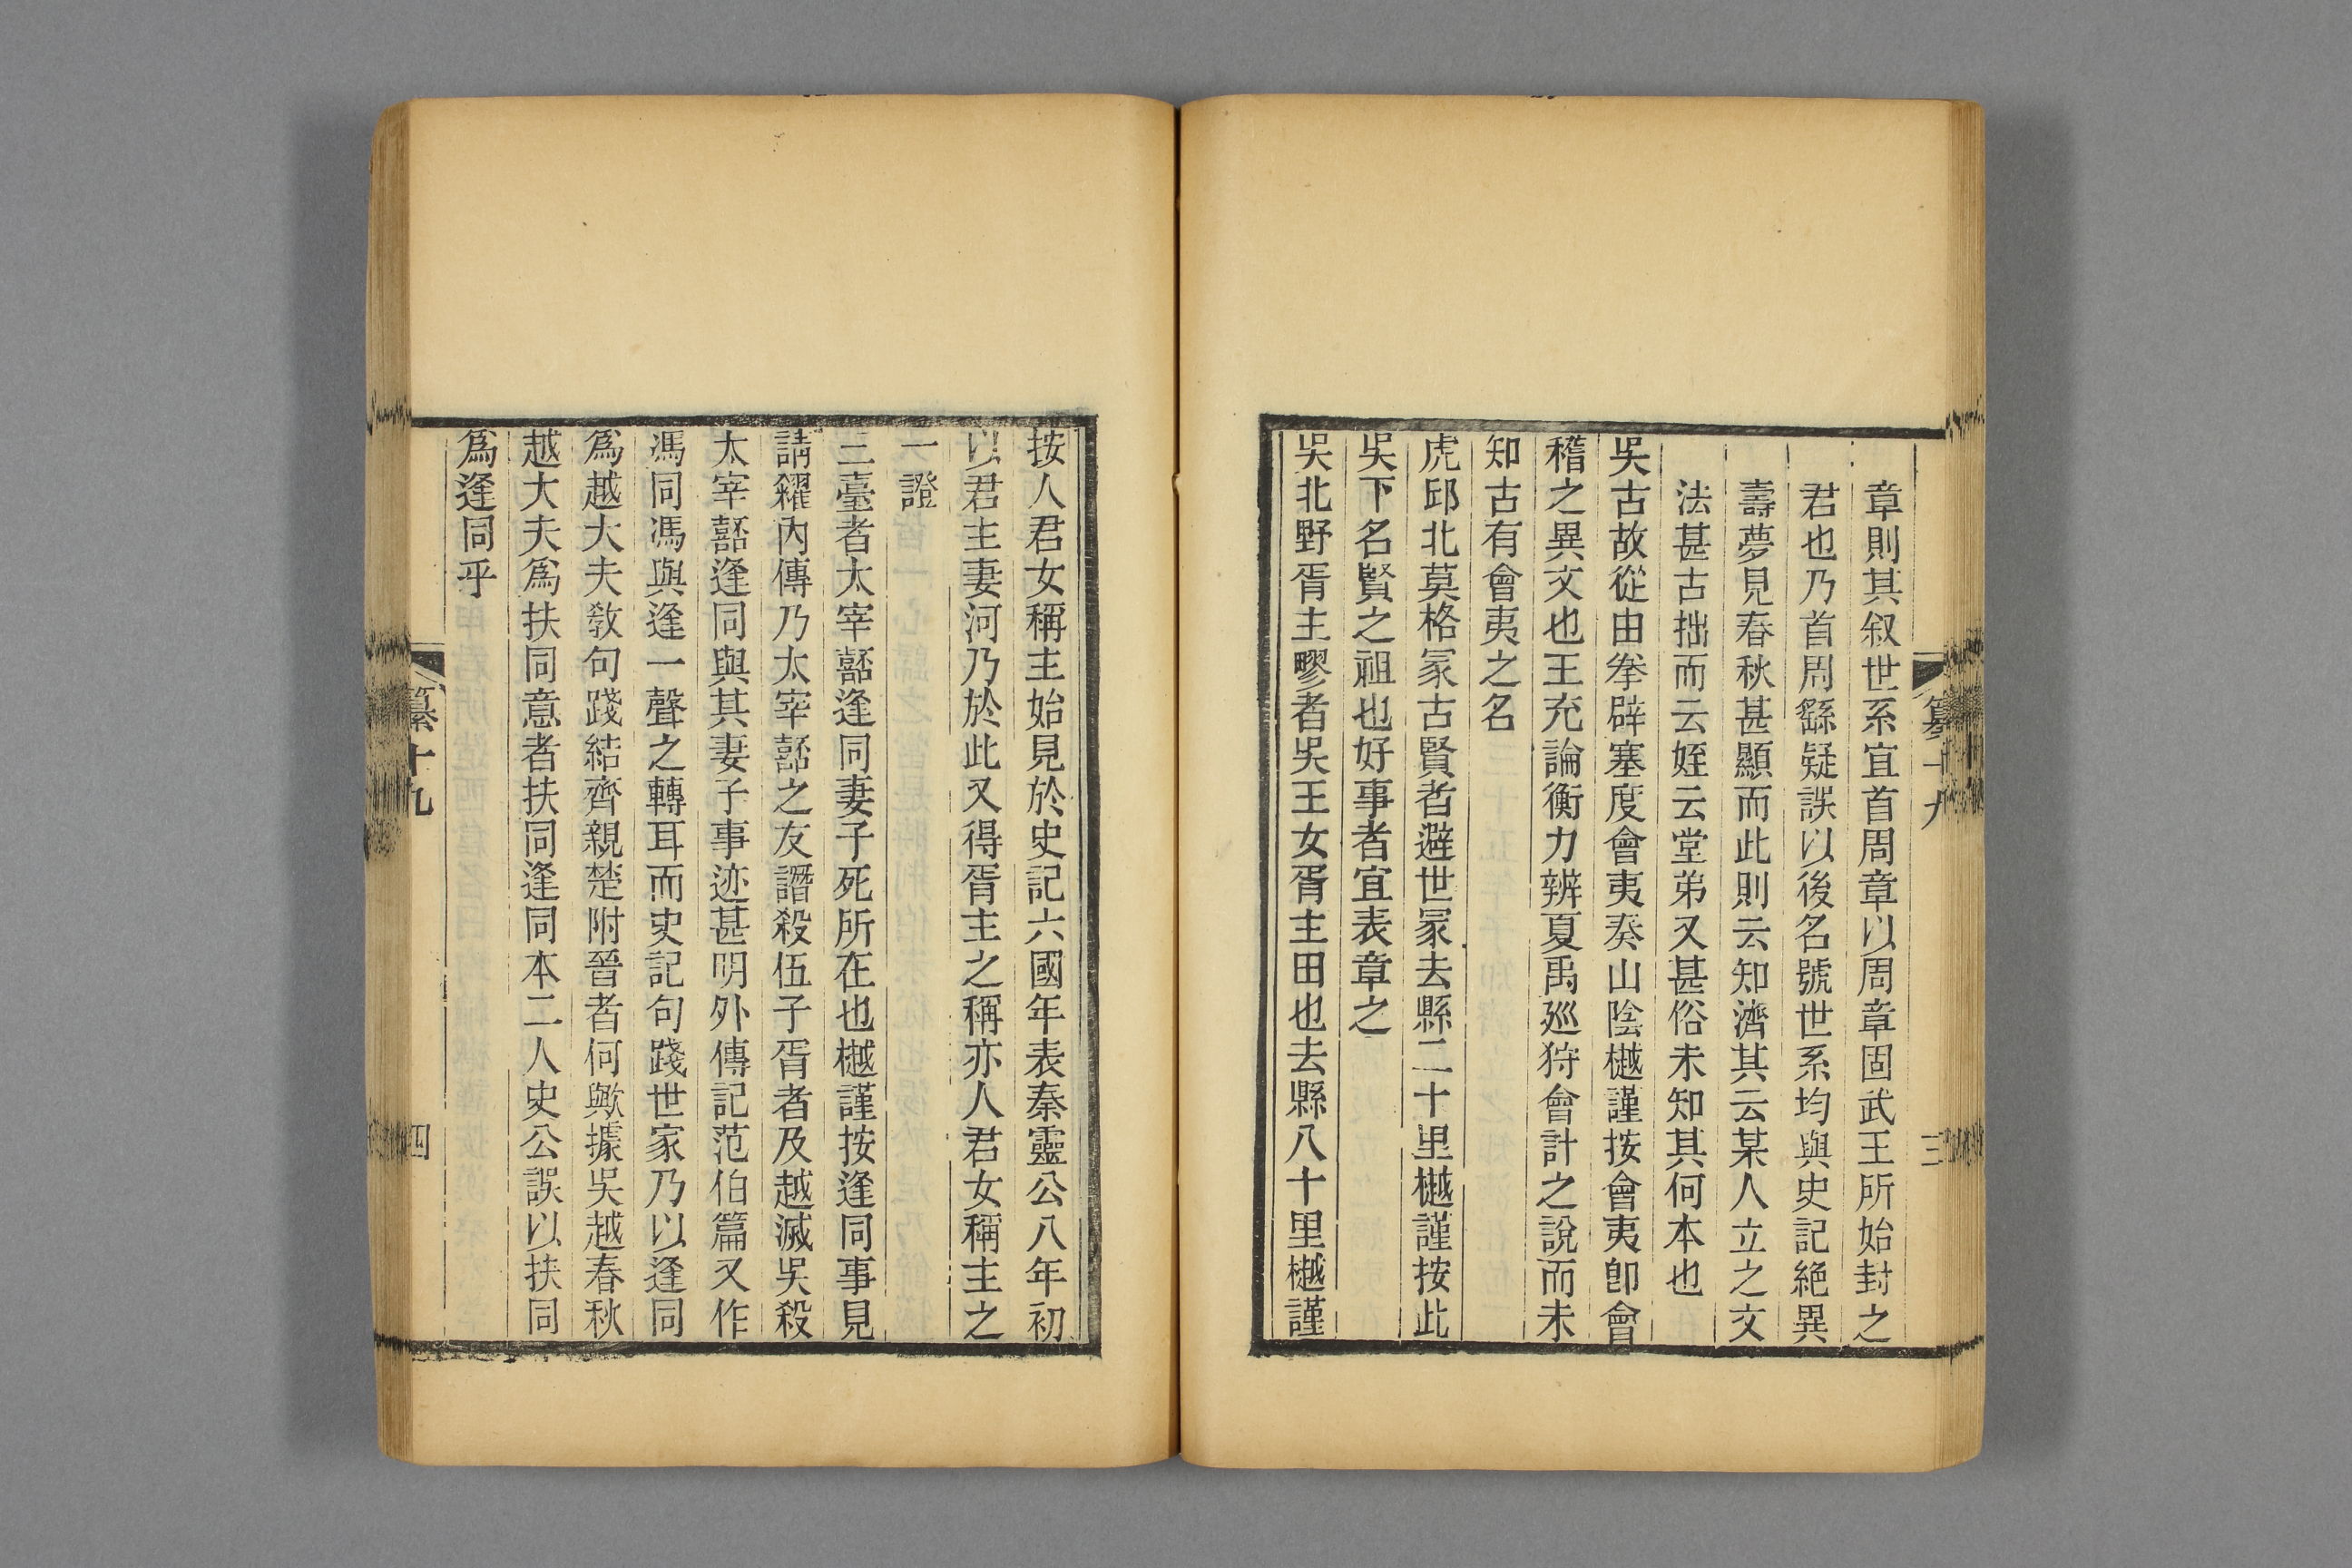 章則其叙世系宜首周章以周章固武王所始封之
君也乃首周繇疑誤以後名號世系均與史記絶異
壽夢見春秋甚顯而此則云知濟其云某人立之文
法甚古拙而云姪云堂弟又甚俗未知其何本也
吳古故從由拳辟塞度會夷奏山陰樾謹按會夷卽會
稽之異文也王充論衡力辨夏禹廵狩會計之說而未
知古有會夷之名
虎邱北莫格冢古賢者避世冢去縣二十里樾謹按此
吳下名賢之祖也好事者宜表章之
吳北野胥主疁者吳王女胥主田也去縣八十里樾謹
纂十九
三
按人君女稱主始見於史記六國年表秦靈公八年初
以君主妻河乃於此又得胥主之稱亦人君女稱主之
一證
三臺者太宰嚭逢同妻子死所在也樾謹按逢同事見
請糴內傳乃太宰嚭之友譖殺伍子胥者及越滅吳殺
太宰嚭逢同與其妻子事迹甚明外傳記范伯篇又作
馮同馮與逢一聲之轉耳而史記句踐世家乃以逢同
爲越大夫敎句踐結齊親楚附晉者何歟據吳越春秋
越大夫爲扶同意者扶同逢同本二人史公誤以扶同
爲逢同乎
纂十九
四